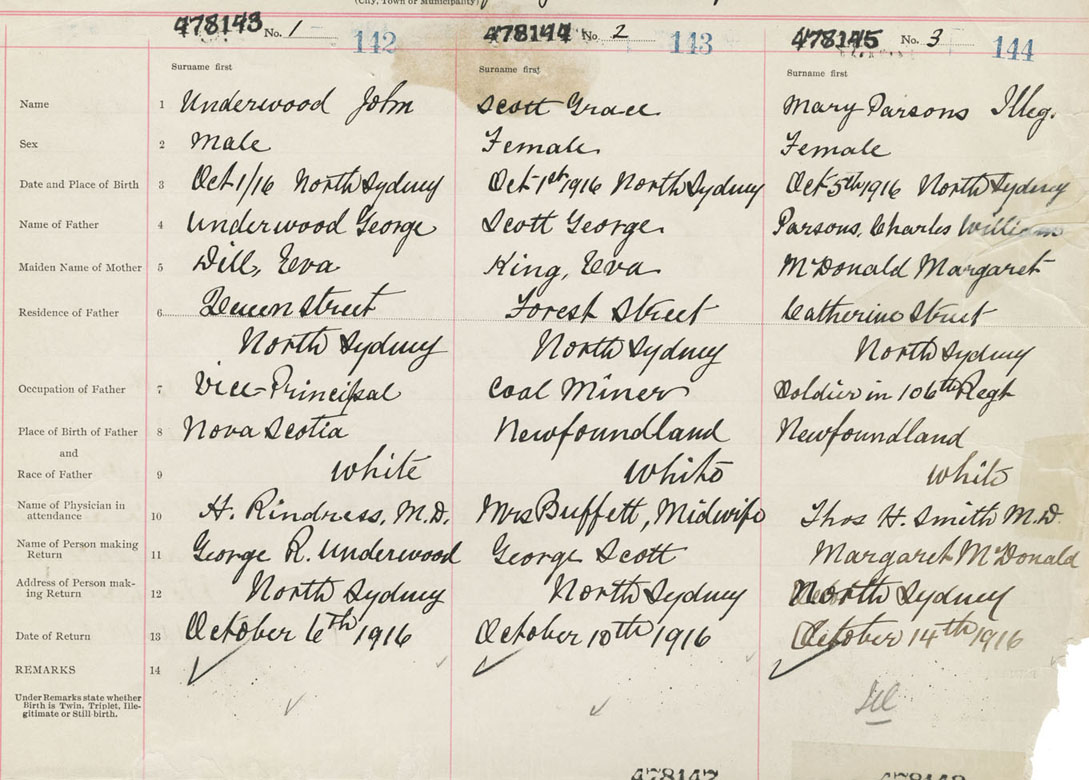 (City, Town or Municipality)
478143 No. 1 142 478144 No. 2 143 478145 No. 3 144
Surname first Surname first Surname first
Name 1 Underwood John Scott Grace Mary Parsons Illeg.
Sex 2 Male Female Female
Date and Place of Birth 3 Oct 1/16 North Sydney Oct 1st 1916 North Sydney Oct 5th 1916 North Sydney
Name of Father 4 Underwood George Scott George Parsons, Charles William
Maiden Name of Mother 5 Dill, Eva King, Eva McDonald Margaret
Residence of Father 6 Queen Street Forest Street Catherine Street
North Sydney North Sydney North Sydney
Occupation of Father 7 Vice-Principal Coal Miner Soldier in 106th Regt
Place of Birth of Father 8 Nova Scotia Newfoundland Newfoundland
and
Race of Father 9 white white white
Name of Physician in
attendance 10 H. Rindress, M.D. Mrs Buffett, Midwife Thos H. Smith M.D.
Name of Person making
Return 11 George R. Underwood George Scott Margaret McDonald
Address of Person mak-
ing Return 12 North Sydney North Sydney North Sydney
Date of Return 13 October 6th 1916 October 10th 1916 October 14th 1916
REMARKS 14
Under Remarks state whether
Birth is Twin, Triplet, Ille-
gitimate or Still birth.
Ill
478147